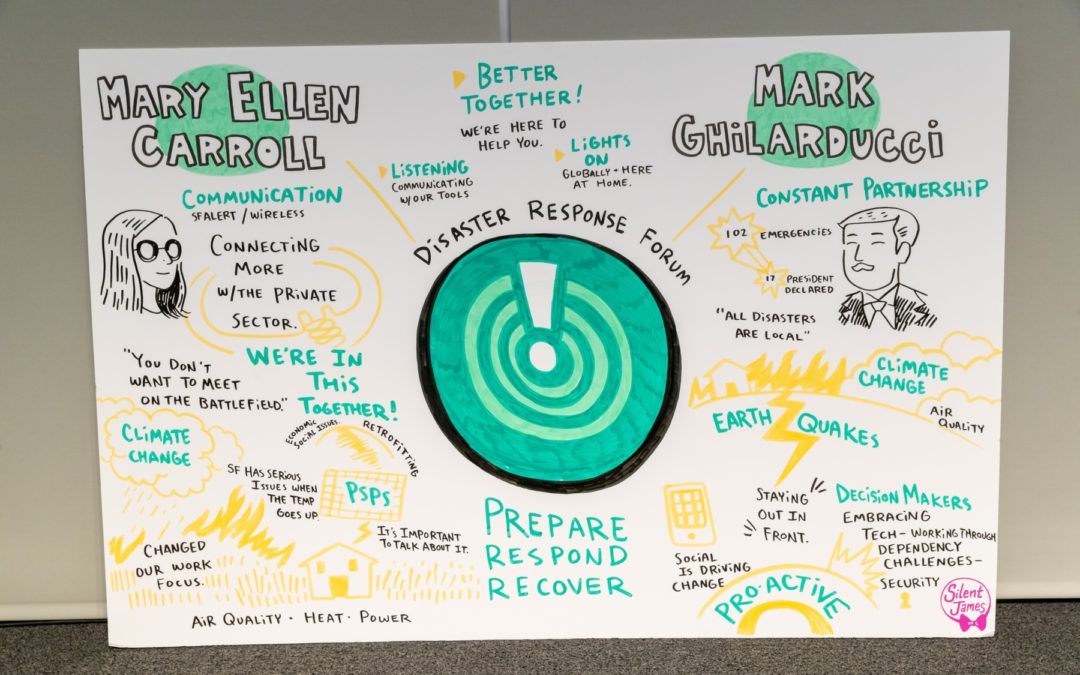 MARY ELLEN
CARROLL
COMMUNICATION
SFALERT / WIRELESS
CONNECTING
MORE
W/THE PRIVATE
SECTOR.
"YOU DON'T
WANT TO MEET
ON THE BATTLEFIELD."
WE'RE IN
THIS
TOGETHER!
CLIMATE
CHANGE
ECONOMIC
SOCIAL ISSUES.
RETROFITTING
SF HAS SERIOUS
ISSUES WHEN
THE TEMP
GOES UP.
PSPs
IT'S IMPORTANT
TO TALK ABOUT IT.
CHANGED
OUR WORK
FOCUS.
AIR QUALITY · HEAT · POWER
BETTER
TOGETHER!
WE'RE HERE TO
HELP YOU.
LISTENING
COMMUNICATING
W/OUR TOOLS
LIGHTS
ON
GLOBALLY + HERE
AT HOME.
DISASTER RESPONSE FORUM
PREPARE
RESPOND
RECOVER
MARK
GHILARDUCCI
CONSTANT PARTNERSHIP
102 EMERGENCIES
17 PRESIDENT
DECLARED
"ALL DISASTERS
ARE LOCAL"
CLIMATE
CHANGE
AIR
QUALITY
EARTH QUAKES
STAYING
OUT IN
FRONT.
SOCIAL
IS DRIVING
CHANGE
DECISION MAKERS
EMBRACING
TECH - WORKING THROUGH
DEPENDENCY
CHALLENGES -
SECURITY
PRO·ACTIVE
Silent
James